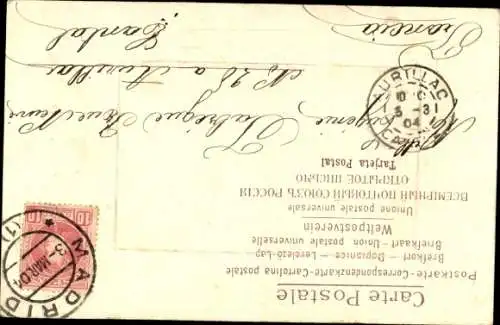 Carte Postale
Postkarte - Correspondenzkarte - Cartolina postale
Brefkort - Dopisnice - Levelező-Lap
Breifkaart - Union postale universelle
Weltpostverein
Unione postale universale
ВСЕМІРНЫЙ ПОЧТОВЫЙ СОЮЗЪ РОССІЯ
ОТКРЫТОЕ ПИСЬМО
Tarjeta Postal
Eugénie
Fabrègue
Nº 28 a Aurillac
Cantal
Francia
AURILLAC
3 - 31
04
CANTAL
10 10
MADRID
3 - MAR 04
(1)